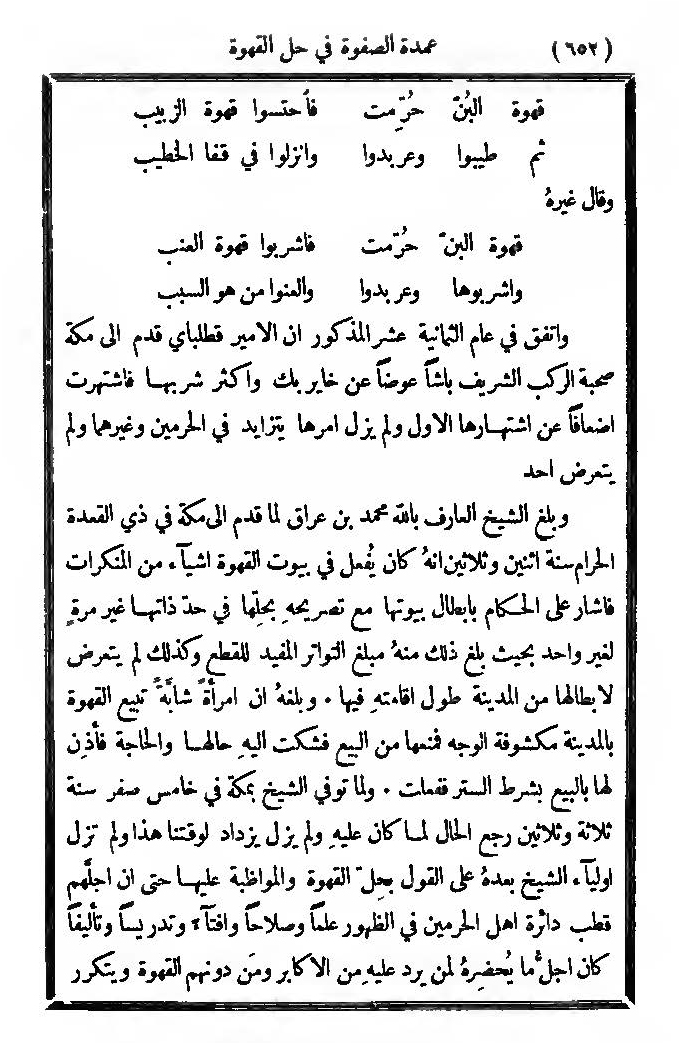 (٦٥٢) عمدة الصفوة في حل القهوة
قهوة البُنّ حُرِّمت فاحتسوا قهوة الزبيب
ثم طيبوا وعربدوا وانزلوا في قفا الخطيب
وقال غيرهُ
قهوة البنّ حُرّمت فاشربوا قهوة العنب
واشربوها وعربدوا والعنوا من هو السبب
واتفق في عام الثمانية عشر المذكور ان الامير قطلباي قدم الى مكة
صحبة الركب الشريف باشاً عوضاً عن خاير بك واكثر شربهـا فاشتهرت
اضعافاً عن اشتهـارها الاول ولم يزل امرها يتزايد في الحرمين وغيرهما ولم
يتعرض احد
وبلغ الشيخ العارف بالله محمد بن عراق لما قدم الى مكة في ذي القعدة
الحرام سنة اثنين وثلاثين انهُ كان يُفعل في بيوت القهوة اشيآء من المنكرات
فاشار على الحكام بابطال بيوتها مع تصريحهِ بحلِّها في حدّ ذاتهـا غير مرةٍ
لغير واحد بحيث بلغ ذلك منهُ مبلغ التواتر المفيد للقطع وكذلك لم يتعرض
لابطالها من المدينة طول اقامتهِ فيها ٠ وبلغهُ ان امرأةً شابَّةً تبيع القهوة
بالمدينة مكشوفة الوجه فمنعها من البيع فشكت اليهِ حالهـا والحاجة فأذِن
لها بالبيع بشرط الستر ففعلت ٠ ولما توفي الشيخ بمكة في خامس صفر سنة
ثلاثة وثلاثين رجع الحال لمـا كان عليهِ ولم يزل يزداد لوقتنا هذا ولم تزل
اوليآء الشيخ بعدهُ على القول بحِلّ القهوة والمواظبة عليهـا حتى ان اجلَّهم
قطب دائرة اهل الحرمين في الظهور علماً وصلاحاً وافتآءً وتدريساً وتأليفاً
كان اجلُّ ما يُحضِرهُ لمن يرد عليهِ من الاكابر ومَن دونهم القهوة ويتكرر